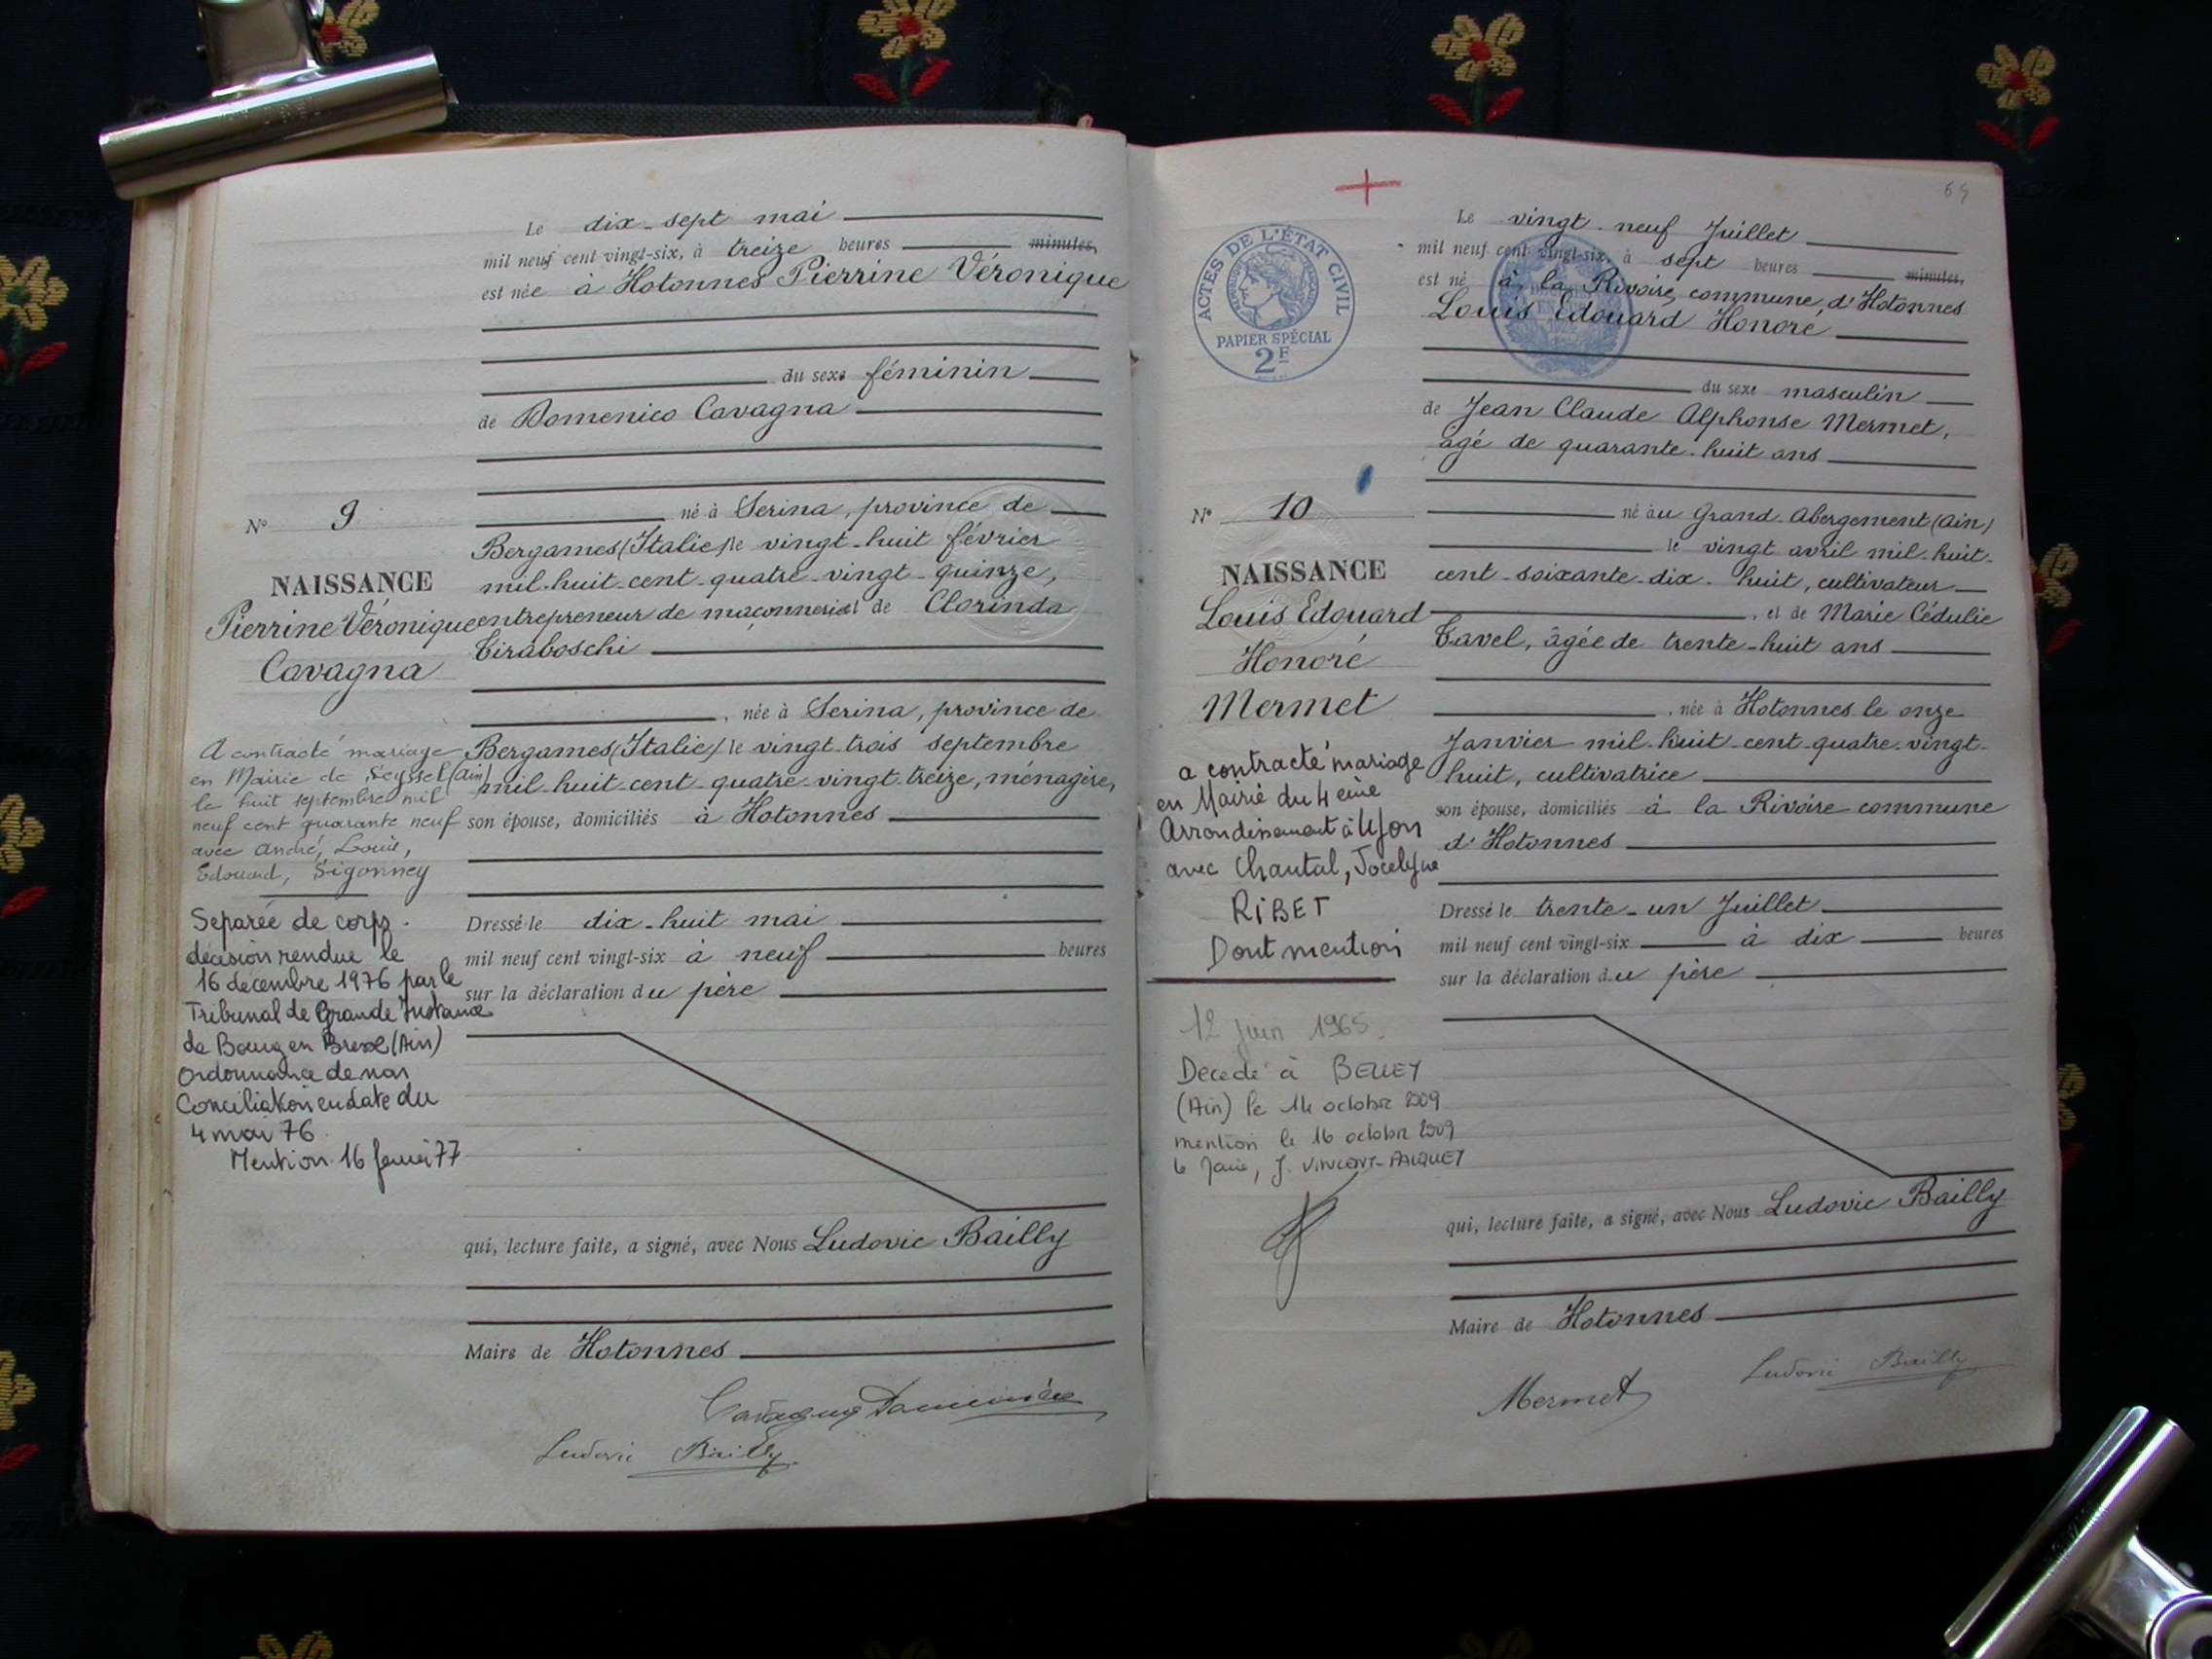 Le dix-sept mai
mil neuf cent vingt-six, à treize heures minutes,
est née à Hotonnes Pierrine Véronique
du sexe féminin
de Domenico Cavagna
né à Serina, province de
Bergames (Italie) le vingt-huit février
mil-huit-cent-quatre-vingt-quinze,
entrepreneur de maçonnerie et de Clorinda
Tiraboschi
, née à Serina, province de
Bergames (Italie) le vingt-trois septembre
mil-huit-cent-quatre-vingt-treize, ménagère,
son épouse, domiciliés à Hotonnes
Dressé le dix-huit mai
mil neuf cent vingt-six à neuf heures
sur la déclaration du père
qui, lecture faite, a signé, avec Nous Ludovic Bailly
Maire de Hotonnes
Ludovic Bailly
N° 9
NAISSANCE
Pierrine Véronique
Cavagna
A contracté mariage
en Mairie de Seyssel (Ain)
le huit septembre mil
neuf cent quarante neuf
avec André, Louis,
Edouard, Sigonney
Séparée de corps.
décision rendue le
16 décembre 1976 par le
Tribunal de Grande Instance
de Bourg en Bresse (Ain)
Ordonnance de non
Conciliation en date du
4 mai 76
Mention 16 77
69
Le vingt-neuf Juillet
mil neuf cent vingt-six, à sept heures minutes,
est né à la Rivoire, commune d'Hotonnes
Louis Edouard Honoré
du sexe masculin
de Jean Claude Alphonse Mermet,
agé de quarante-huit ans
né au Grand Abergement (Ain)
le vingt avril mil-huit-
cent-soixante-dix-huit, cultivateur
, et de Marie Cédulie
Tavel, âgée de trente-huit ans
, née à Hotonnes le onze
Janvier mil-huit-cent-quatre-vingt-
huit, cultivatrice
son épouse, domiciliés à la Rivoire commune
d'Hotonnes
Dressé le trente-un Juillet
mil neuf cent vingt-six à dix heures
sur la déclaration du père
qui, lecture faite, a signé, avec Nous Ludovic Bailly
Maire de Hotonnes
Mermet
Ludovic Bailly
ACTES DE L'ÉTAT CIVIL
PAPIER SPÉCIAL
2F
N° 10
NAISSANCE
Louis Edouard
Honoré
Mermet
a contracté mariage
en Mairie du 4 eme
Arrondissement à Lyon
avec Chantal, Jocelyne
RIBET
Dont mention
12 juin 1965.
Décédé à BELLEY
(Ain) le 14 octobre 2009
mention le 16 octobre 2009
le Maire, J. VINCENT-PAQUET